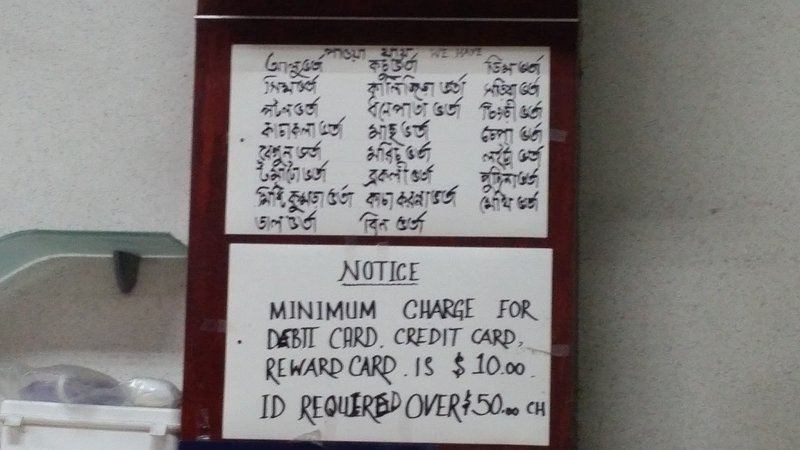 পাওয়া যায় WE HAVE
আলু ভর্তা কচু ভর্তা ডিম ভর্তা
সিম ভর্তা কালিজিরা ভর্তা সরিষা ভর্তা
পটল ভর্তা ধনেপাতা ভর্তা চিংড়ী ভর্তা
কাচাকলা ভর্তা মাছ ভর্তা চেপা ভর্তা
বেগুন ভর্তা মরিচ ভর্তা লইট্টা ভর্তা
টমাটো ভর্তা ব্রকলী ভর্তা পুদিনা ভর্তা
মিষ্টি কুমড়া ভর্তা কাচা করল্লা ভর্তা মেথি ভর্তা
ডাল ভর্তা বিন ভর্তা
NOTICE
MINIMUM CHARGE FOR
DEBIT CARD. CREDIT CARD,
REWARD CARD. IS $10.00.
ID REQUIRED OVER $50.00 CH